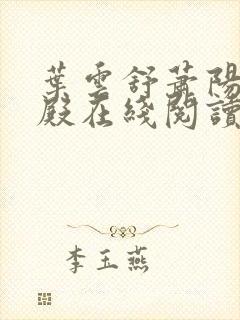 葉雲舒蕭陽
殿在綫閱讀
李玉燕